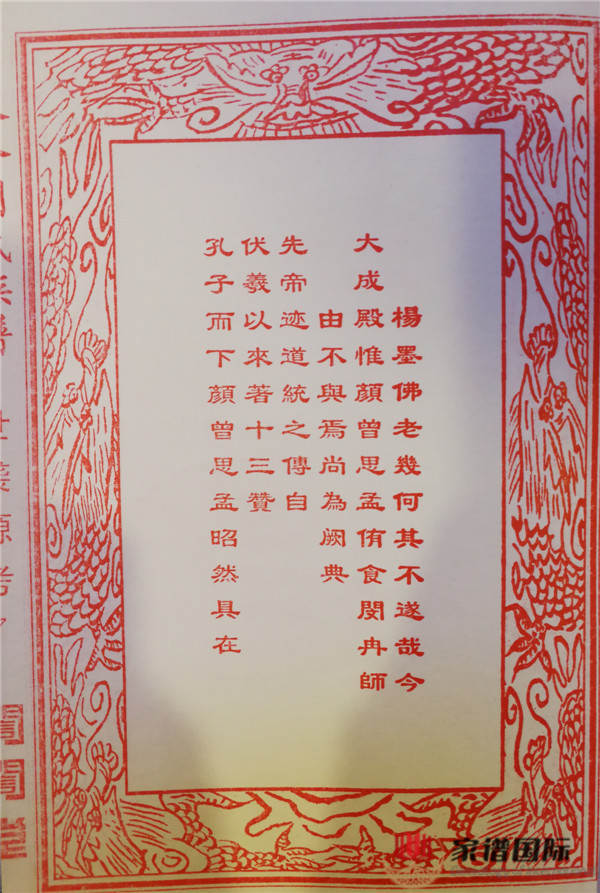 楊墨佛老幾何其不遂哉今
大成殿惟顏曾思孟侑食閔冉師
由不與焉尚為闕典
先帝迹道統之傳自
伏羲以來著十三贊
孔子而下顏曾思孟昭然具在
家谱国际